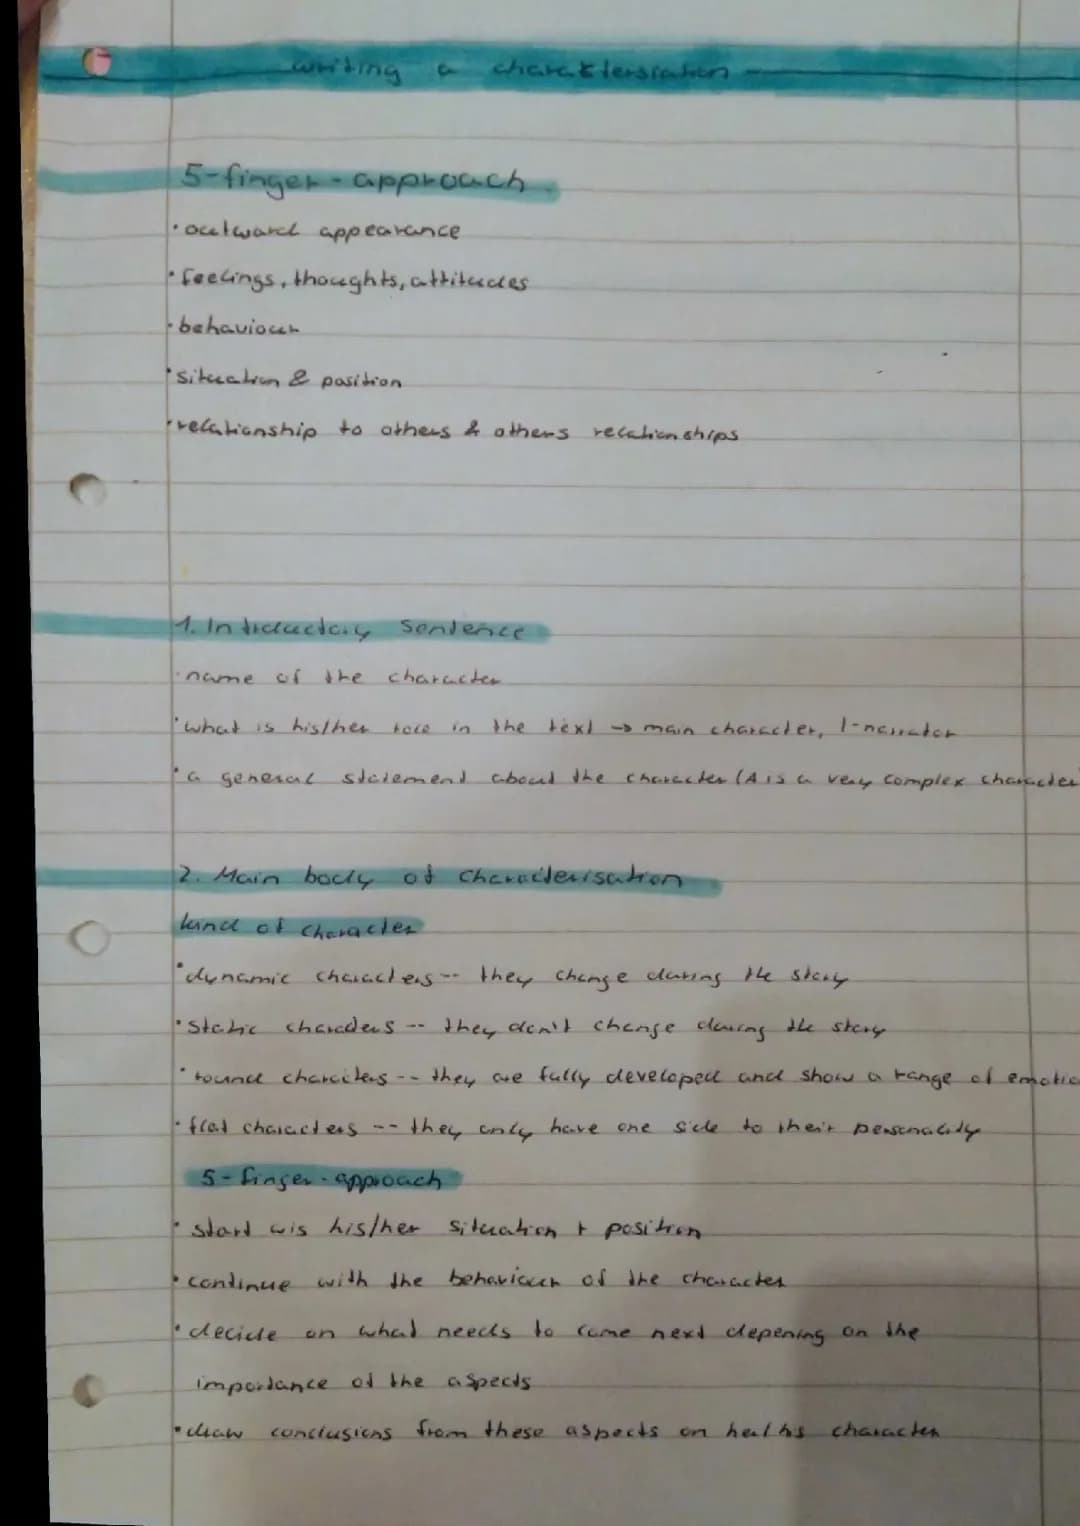 writing a charakterisation
5-finger-approach
• outward appearance
• feelings, thoughts, attitudes
• behaviour
• situation & position
• relationship to others & others relationships
1. Introductory Sentence
• name of the character
• what is his/her role in the text → main character, I-narrator
• a general statement about the character (A is a very complex character
2. Main body of characterisation
kind of character
• dynamic characters -- they change during the story
• static characters -- they don't change during the story
• round characters -- they are fully developed and show a range of emotio
• flat characters -- they only have one side to their personality
5-finger-approach
• start wis his/her situation + position
• continue with the behaviour of the character
• decide on what needs to come next depening on the
importance of the aspects
• draw conclusions from these aspects on character